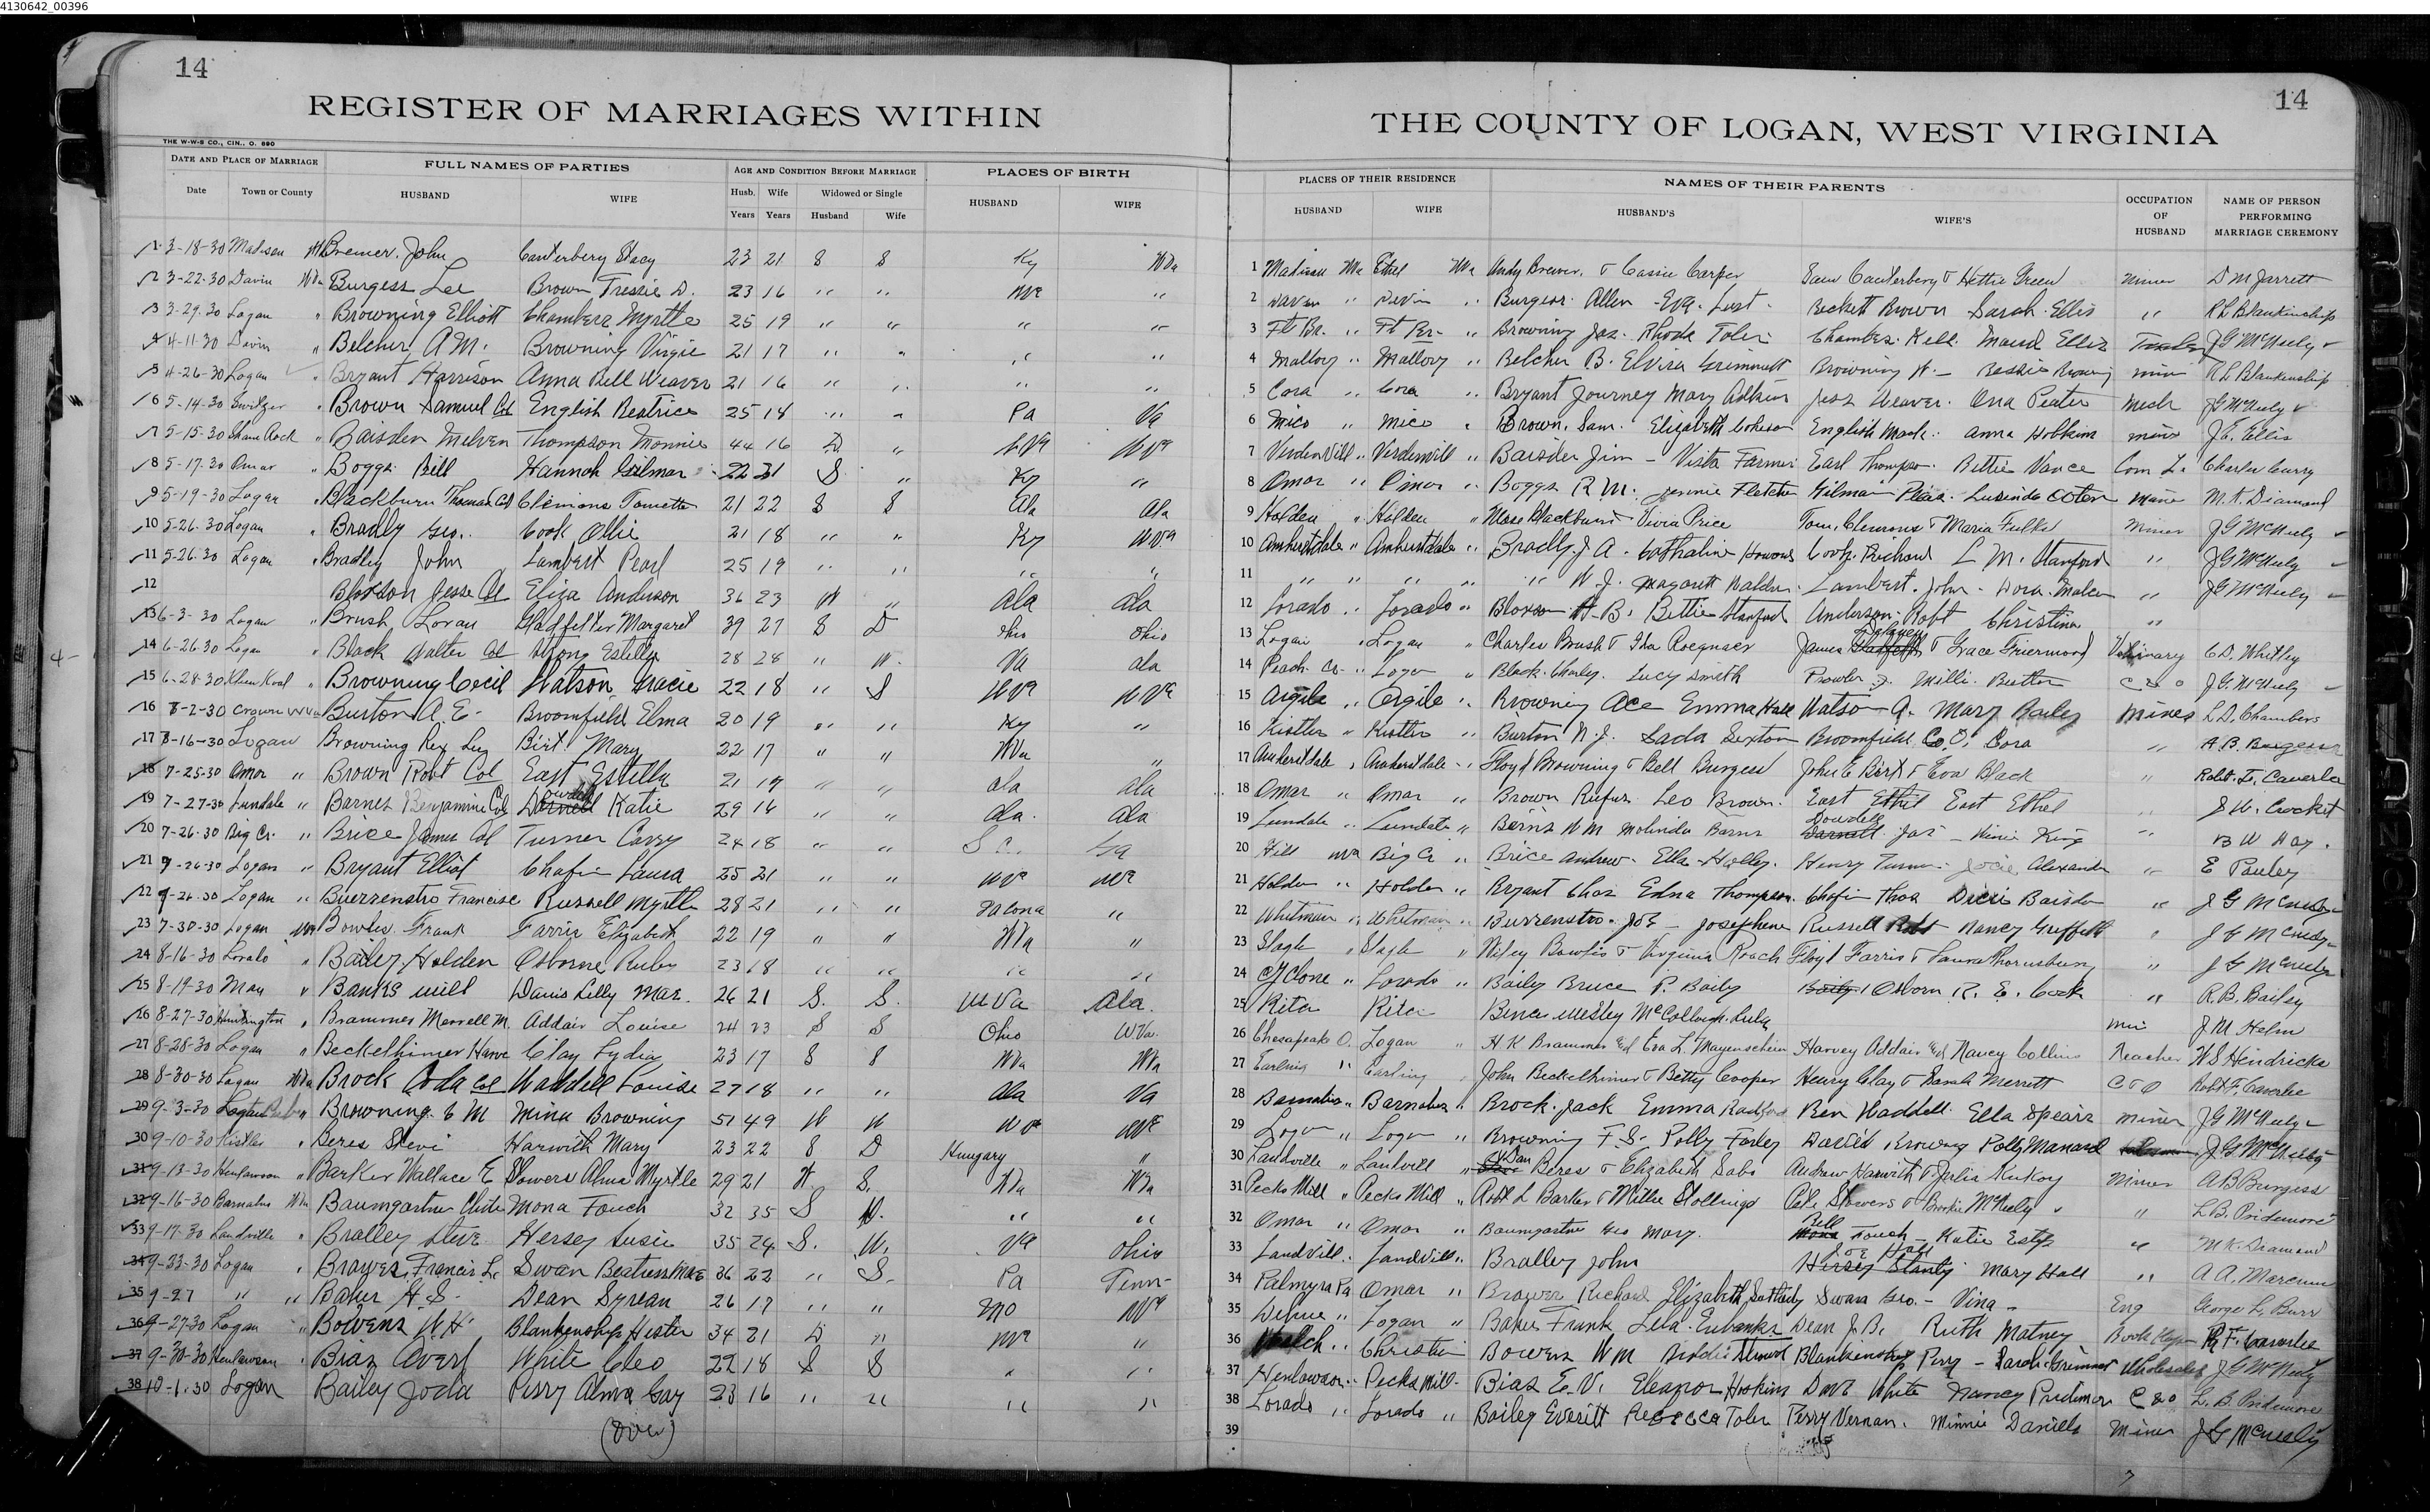 4130642_00396
14
REGISTER OF MARRIAGES WITHIN
THE W-W-B CO., CIN., O. 890
DATE AND PLACE OF MARRIAGE FULL NAMES OF PARTIES AGE AND CONDITION BEFORE MARRIAGE PLACES OF BIRTH
Date Town or County HUSBAND WIFE Husb. Wife Widowed or Single HUSBAND WIFE
Years Years Husband Wife
1 3-18-30 Madison Bremer. John Canterbery Stacy 23 21 S S Ky WVa
2 3-22-30 Davin WVa Burgess Lee Brown Tressie D. 23 16 " " "
3 3-29-30 Logan " Browning Elliott Chambers Myrtle 25 19 " " " "
4 4-11-30 Davin " Belcher A M. Browning Virgie 21 17 " " " "
5 4-26-30 Logan " Bryant Harrison Anna Bell Weaver 21 16 " " " "
6 5-14-30 Switzer " Brown Samuel Col English Beatrice 25 18 " " Pa Va
7 5-15-30 Shamrock " Baisden Melven Thompson Monnie 44 16 D " WVa WVa
8 5-17-30 Omar " Boggs Bill Hannah Gilman 22 31 S. " Ky "
9 5-19-30 Logan " Blackburn Thomas Col Clemons Tometta 21 22 S S Ala Ala
10 5-26-30 Logan " Bradly Geo. Cook Ollie 21 18 " " Ky WVa
11 5-26-30 Logan " Bradley John Lambert Pearl 25 19 " " " "
12 Bloxson Jesse Col Eliza Anderson 36 23 W " Ala Ala
13 6-3-30 Logan " Brush Loran Gladfetter Margaret 39 27 S D Ohio Ohio
14 6-26-30 Logan " Black Walter Col Strong Estella 28 28 " W. Va Ala
15 6-28-30 " Browning Cecil Watson, Gracie 22 18 " S WVa WVa
16 8-2-30 Crown WVa Burton A. E. Broomfield Elma 20 19 " " Ky "
17 8-16-30 Logan Browning Rex Lee Birt Mary 22 17 " " WVa "
18 7-25-30 Omar " Brown Robt Col East Estella 21 19 " " Ala Ala
19 7-27-30 Lundale " Barnes Benjamine Col Katie 29 16 " " Ala. Ala
20 7-26-30 Big Cr. " Brice James Col Turner Carry 24 18 " " S C. Ga
21 9-26-30 Logan " Bryant Elliot Chafin Laura 25 21 " " WVa WVa
22 9-26-30 Logan " Buerzenstro Francise Russell Myrtle 28 21 " " "
23 7-30-30 Logan WVa Bowles Frank Farris Elizabeth 22 19 " " WVa "
24 8-16-30 Lorado " Bailey, Holden Osborne Ruby 23 18 " " " "
25 8-19-30 Man " Banks Will Davis Lilly Mae. 26 21 S. S. WVa Ala.
26 8-27-30 Huntington " Brammer Merrell M. Addair Louise 24 23 S S Ohio W.Va.
27 8-28-30 Logan " Beckelhimer Harve Clay Lydia 23 17 S S WVa WVa
28 8-30-30 Logan WVa Brock Orda Col Waddell Louise 27 18 " " Ala Va
29 9-3-30 " Browning. C M Mina Browning 51 49 W W WVa WVa
30 9-10-30 Kistler " Beres Stevi Harwith Mary 23 22 S D Hungary "
31 9-13-30 Henlawson " Barker Wallace E Stowers Alma Myrtle 29 21 W. S. WVa WVa
32 9-16-30 Barnabus WVa Baumgartner Clide Mona Fouch 32 35 S W. " "
33 9-17-30 Landville " Bralley Steve Hersey Susie 35 24 S. W. Va Ohio
34 9-23-30 Logan " Brower, Francis L. Swan Beatress Mae 36 22 " S. Pa Tenn-
35 9-27 " " Baker H. S. Dean Syrean 26 17 " " Mo WVa
36 9-27-30 Logan " Bowens W H. Blankenship Hester 34 21 D " WVa "
37 9-30-30 Henlawson " Biaz Overl White Cleo 22 18 S S " "
38 10-1-30 Logan Bailey Joda Perry Alma Gay 23 16 " " " "
(over)
14
THE COUNTY OF LOGAN, WEST VIRGINIA
PLACES OF THEIR RESIDENCE NAMES OF THEIR PARENTS OCCUPATION OF HUSBAND NAME OF PERSON PERFORMING MARRIAGE CEREMONY
HUSBAND WIFE HUSBAND'S WIFE'S
1 Madison WVa Ethel WVa Andy Brewer. & Cassie Carper Sam Canterbery & Hettie Green Miner D M Jarrett
2 Davin " Davin " Burgess. Allen - Eva. Lust. Beckett Brown Sarah. Ellis " R L Blankinship
3 Ft Br. " Ft Br- " Browning Jas. Rhoda Toler Chambers. Kell. Maud Ellis J G McNeely
4 Mallory " Mallory " Belcher B. Elvira Grimmett Browning W. - Bessie Browning min R L Blankenship
5 Cora " Cora " Bryant Journey Mary Adkins Jess Weaver. Ona Peater Mech J G McNeely
6 Mico " Mico " Brown, Sam. Elizabeth English Mack. Anna Hobkins mine J. E. Ellis
7 Verdenvill " Verdenvill " Baisden Jim - Vista Farmer Earl Thompson. Bettie Vance Com La Charles Curry
8 Omar " Omar " Boggs R M. Jennie Fletcher Gilman Pleas. Lucinda mine M. K. Diamond
9 Holden " Holden " Mose Blackburn & Vivia Price Tom. Clemons & Maria Fulks Miner J G McNeely
10 Amherstdale " Amherstdale " Bradly. J A. Cathaline Cook. Richard L M. Stanford " J G McNeely
11 " " " " " W J. Magarett Walden. Lambert. John. Dora. " J G McNeely
12 Lorado " Lorado " Bloxson H-B. Bettie Stanford Anderson. Robt Christina "
13 Logan " Logan " Charles Brush & Ida James & Grace Griermood C. D. Whitley
14 Peach Cr. " Logan " Black. Charley. Lucy Smith Milli. Button C & O J. G. McNeely
15 Argile " Orgile " Browning Ace Emma Hall Watson A. Mary Bailey Mines L. D. Chambers
16 Kistler " Kistler " Burton N. J. Sada Sexton Broomfield C. O. Cora " A. B. Burgess
17 Amherstdale " Amherstdale " Floyd Browning & Bell Burgess John E Birt & Eva Black " Robt. F. Caverlee
18 Omar " Omar " Brown Rufus Leo Brown. East Ethel East Ethel " S W. Cocket
19 Lundale " Lundale " Barnes W M Molinda Barns Dowdell Jas - King " B W Hay.
20 Hill WVa Big Cr " Brice Andrew. Ella Holley. Henry Turner Josie Alexander " E Pauley
21 Holden " Holden " Bryant Chas Edna Thompson. Chafin Thos Dicie Baisden " J G McNeely
22 Whitman " Whitman " Burzenstro. Joe - Josephene Russell Robt Nancy Griffett " J G McNeely
23 Slagle " Slagle " Wiley Bowles & Virginia Roach Floyd Farris & Laura Thornsbury " J G McNeely
24 Cyclone " Lorado " Baily Bruce P. Baily Osborn R. E. Cook " R. B. Bailey
25 Rita Rita Bince Wesley McCollough. Lula Min J. M Helm
26 Chesapeake O. Logan " H K Brammer and Eva L. Mayenschein Harvey Addair and Nancy Collins Teacher W S Hendricks
27 Earling " Earling " John Beckelhimer & Betty Cooper Henry Clay & Sarah Merrett C & O Robt F. Caverlee
28 Barnabus " Barnabus " Brock. Jack Emma Radford Ben Waddell. Ella Spears Miner J G McNeely
29 Logan " Logan " Browning F. S. Polly Farley David Browning Polly Manard J. G. McNeely
30 Landville " Landvill " Dan Beres & Elizabeth Sabo Andrew Harwith & Julia Kinkoy Miner A B Burgess
31 Pecks Mill " Pecks Mill " Robt L Barker & Millie Stollings Cole Stowers & Brookie McNeely " L. B. Pridemore
32 Omar " Omar " Baumgartner Geo Mary. Bell Fouch - Katie Estep " M K Diamond
33 Landvill. Landvill. Bralley John Joe Hall Mary Hall " A A. Marcum
34 Palmyra Pa Omar " Brower Richard Elizabeth Swan Geo. - Vina - Eng George L. Burr
35 Dehue " Logan " Baker Frank Lela Eubanks Dean J. B. Ruth Matney Book Keeper R F. Caverlee
36 Christian Bowens W M Biddie Blankenship Perry - Sarah. Grimmet J G McNeely
37 Henlawson. Pecks Mill. Bias E. V. Eleanor Hoskins Dave White Nancy Pridemor C & O L. B. Pridemore
38 Lorado " Lorado " Bailey Everitt Rebecca Toler Perry Vernan. Minnie Daniels Miner J G McNeely
39